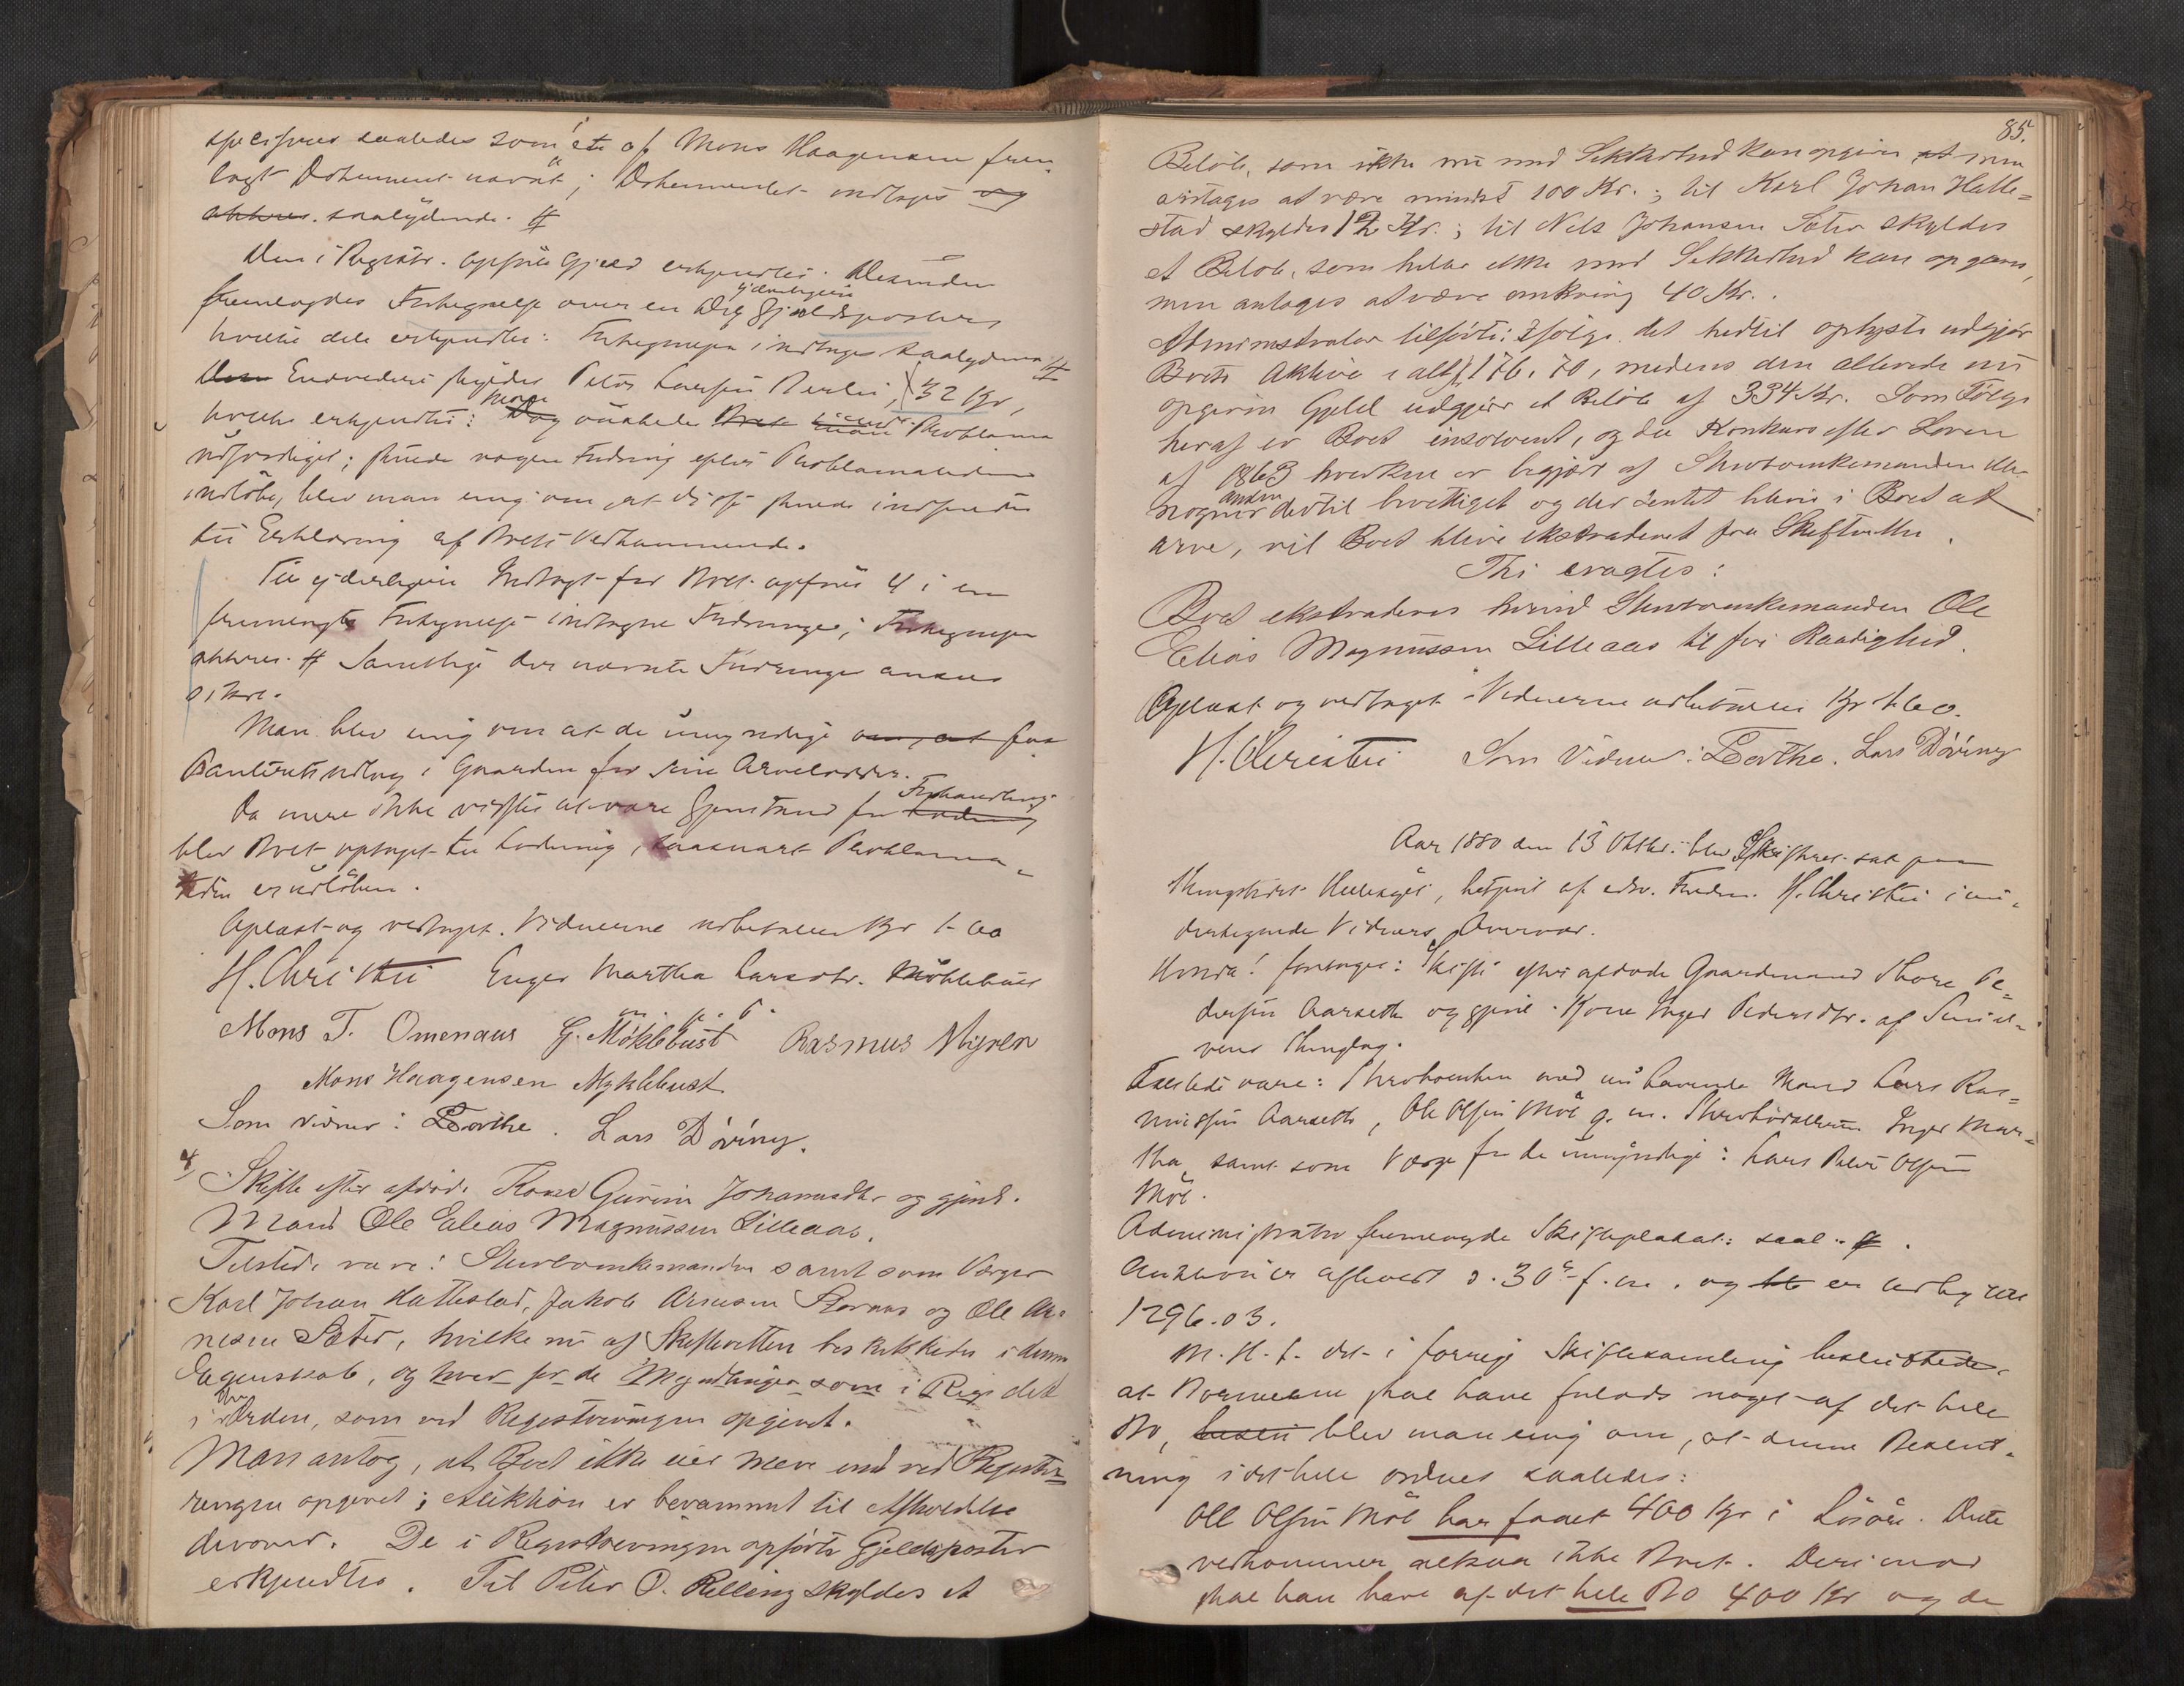 specificeres saaledes som i et af Mons Haagensen frem-
lagt Dokument nævnt; Dokumentet indtages og
akteres. saalydende. #
Den i Registr. opførte Gjæld erkjendtes. Desuden
fremlagdes Fortegnelse over en Del yderligere Gjældsposter,
hvilke alle erkjendtes: Fortegnelsen indtages saalydende #
Dern Endvidere skyldes Peter Larsen 32 Kr,
hvilke erkjendtes: Mons Dog ønskede Proklama
udfærdiget; skulde nogen Fordring efter Proklamatiden
indløbe, blev man enig om, at disse skulde indsendes
til Erklæring af Boets Vedkommende.
Til yderligere Indtægt for Boet opføres 4 i en
fremlagte Fortegnelse indtagne Fordringer; Fortegnelsen
akteres. # Samtlige der nævnte Fordringer ansees
sikre.
Man blev enig om at de umyndige om, at faa
Panteretsudlæg i Gaarden for sine Arvelodder.
Da mere ikke vidstes at være Gjenstand for Forhandling
blev Boet optaget til Lodning, saasnart Proklama-
tiden er udløben.
Oplæst og vedtaget. Vidnerne udbetaltes Kr 1-60
H. Christie Enger Martha Larsdtr. Möklebust
m. p. P.
Mons T. Omenaas G. Möklebust Rasmus Myren
Mons Haagensen Myklebust
Som vidner: Lars Döving.
4) Skifte efter afdøde Kone Gurine Johannesdtr og gjenl.
Mand Ole Elias Magnussen Lilleaas.
Tilstede vare: Sterboenkemanden samt som Værger
Karl Johan Hattestad, Jakob Arnesen Stornes og Ole Ar-
nesen Sæter, hvilke nu af Skifteretten beskikkedes i denne
Egenskab, og hver for de Myndlinger som i Regis det
i den Orden, som ved Registreringen opgivet.
Man antog, at Boet ikke eier mere end ved Registre-
ringen opgivet; Auktion er berammet til Afholdelse
derover. De i Registreringen opførte Gjeldsposter
erkjendtes. Til Peter O. Relling skyldes et
85.
Beløb, som ikke nu med Sikkerhed kan opgives at men
antages at være mindst 100 Kr.; til Karl Johan Hatte-
stad skyldes 12 Kr.; til Nils Johansen Sæter skyldes
et Beløb, som heller ikke med Sikkerhed kan opgives,
men antages at være omkring 40 Kr..
Administrator tilførte: Ifølge det hidtil oplyste udgjør
Boets Aktiva i alt 176.70, medens den allerede nu
opgivne Gjeld udgjør et Beløb af 334 Kr. Som Følge
heraf er Boet insolvent, og da Konkurs efter Loven
af 1863 hverken er begjært af Sterboenkemanden eller
nogen anden dertil berettiget og der Intet bliver i Boet at
arve, vil Boet blive ekstraderet fra Skifteretten.
Thi eragtes:
Boet ekstraderes herved Sterboenkemanden Ole
Elias Magnussen Lilleaas til fri Raadighed.
Oplæst og vedtaget. Vidnerne udbetaltes Kr 1.60.
H. Christie Som Vidner: Lars Döving
Aar 1880 den 13 Oktbr. blev Skifteret sat paa
Thingstedet, betjent af edsv. Fuldm. H. Christie i un-
dertegnede Vidners Overvær.
Hvorda! foretoges: Skifte efter afdøde Gaardmand Thore Pe-
dersen Aarseth og gjenl. Kone Inger Pedersdtr. af
Thinglag.
Tilstede vare: Sterboenken med nu havende Mand Lars Ras-
mussen Aarseth, Ole Olsen Möl g. m. Inger Mar-
tha, samt som Værge for de umyndige: Lars Olsen
Möl.
Administrator fremlagde Skifteplakat: saal. #.
Auktion er afholdt d. 30te f. m. og er udbragt
1296.03.
M. H. t. det i forrige Skiftesamling besluttede,
at Børnene skal have forlods noget af det hele
Bo, blev man enig om, at denne
ning i det hele ordnes saaledes:
Ole Olsen Möl har faaet 400 Kr i Løsøre. Dette
vedkommer altsaa ikke Boet. Derimod
skal han have af det hele Bo 400 Kr og de